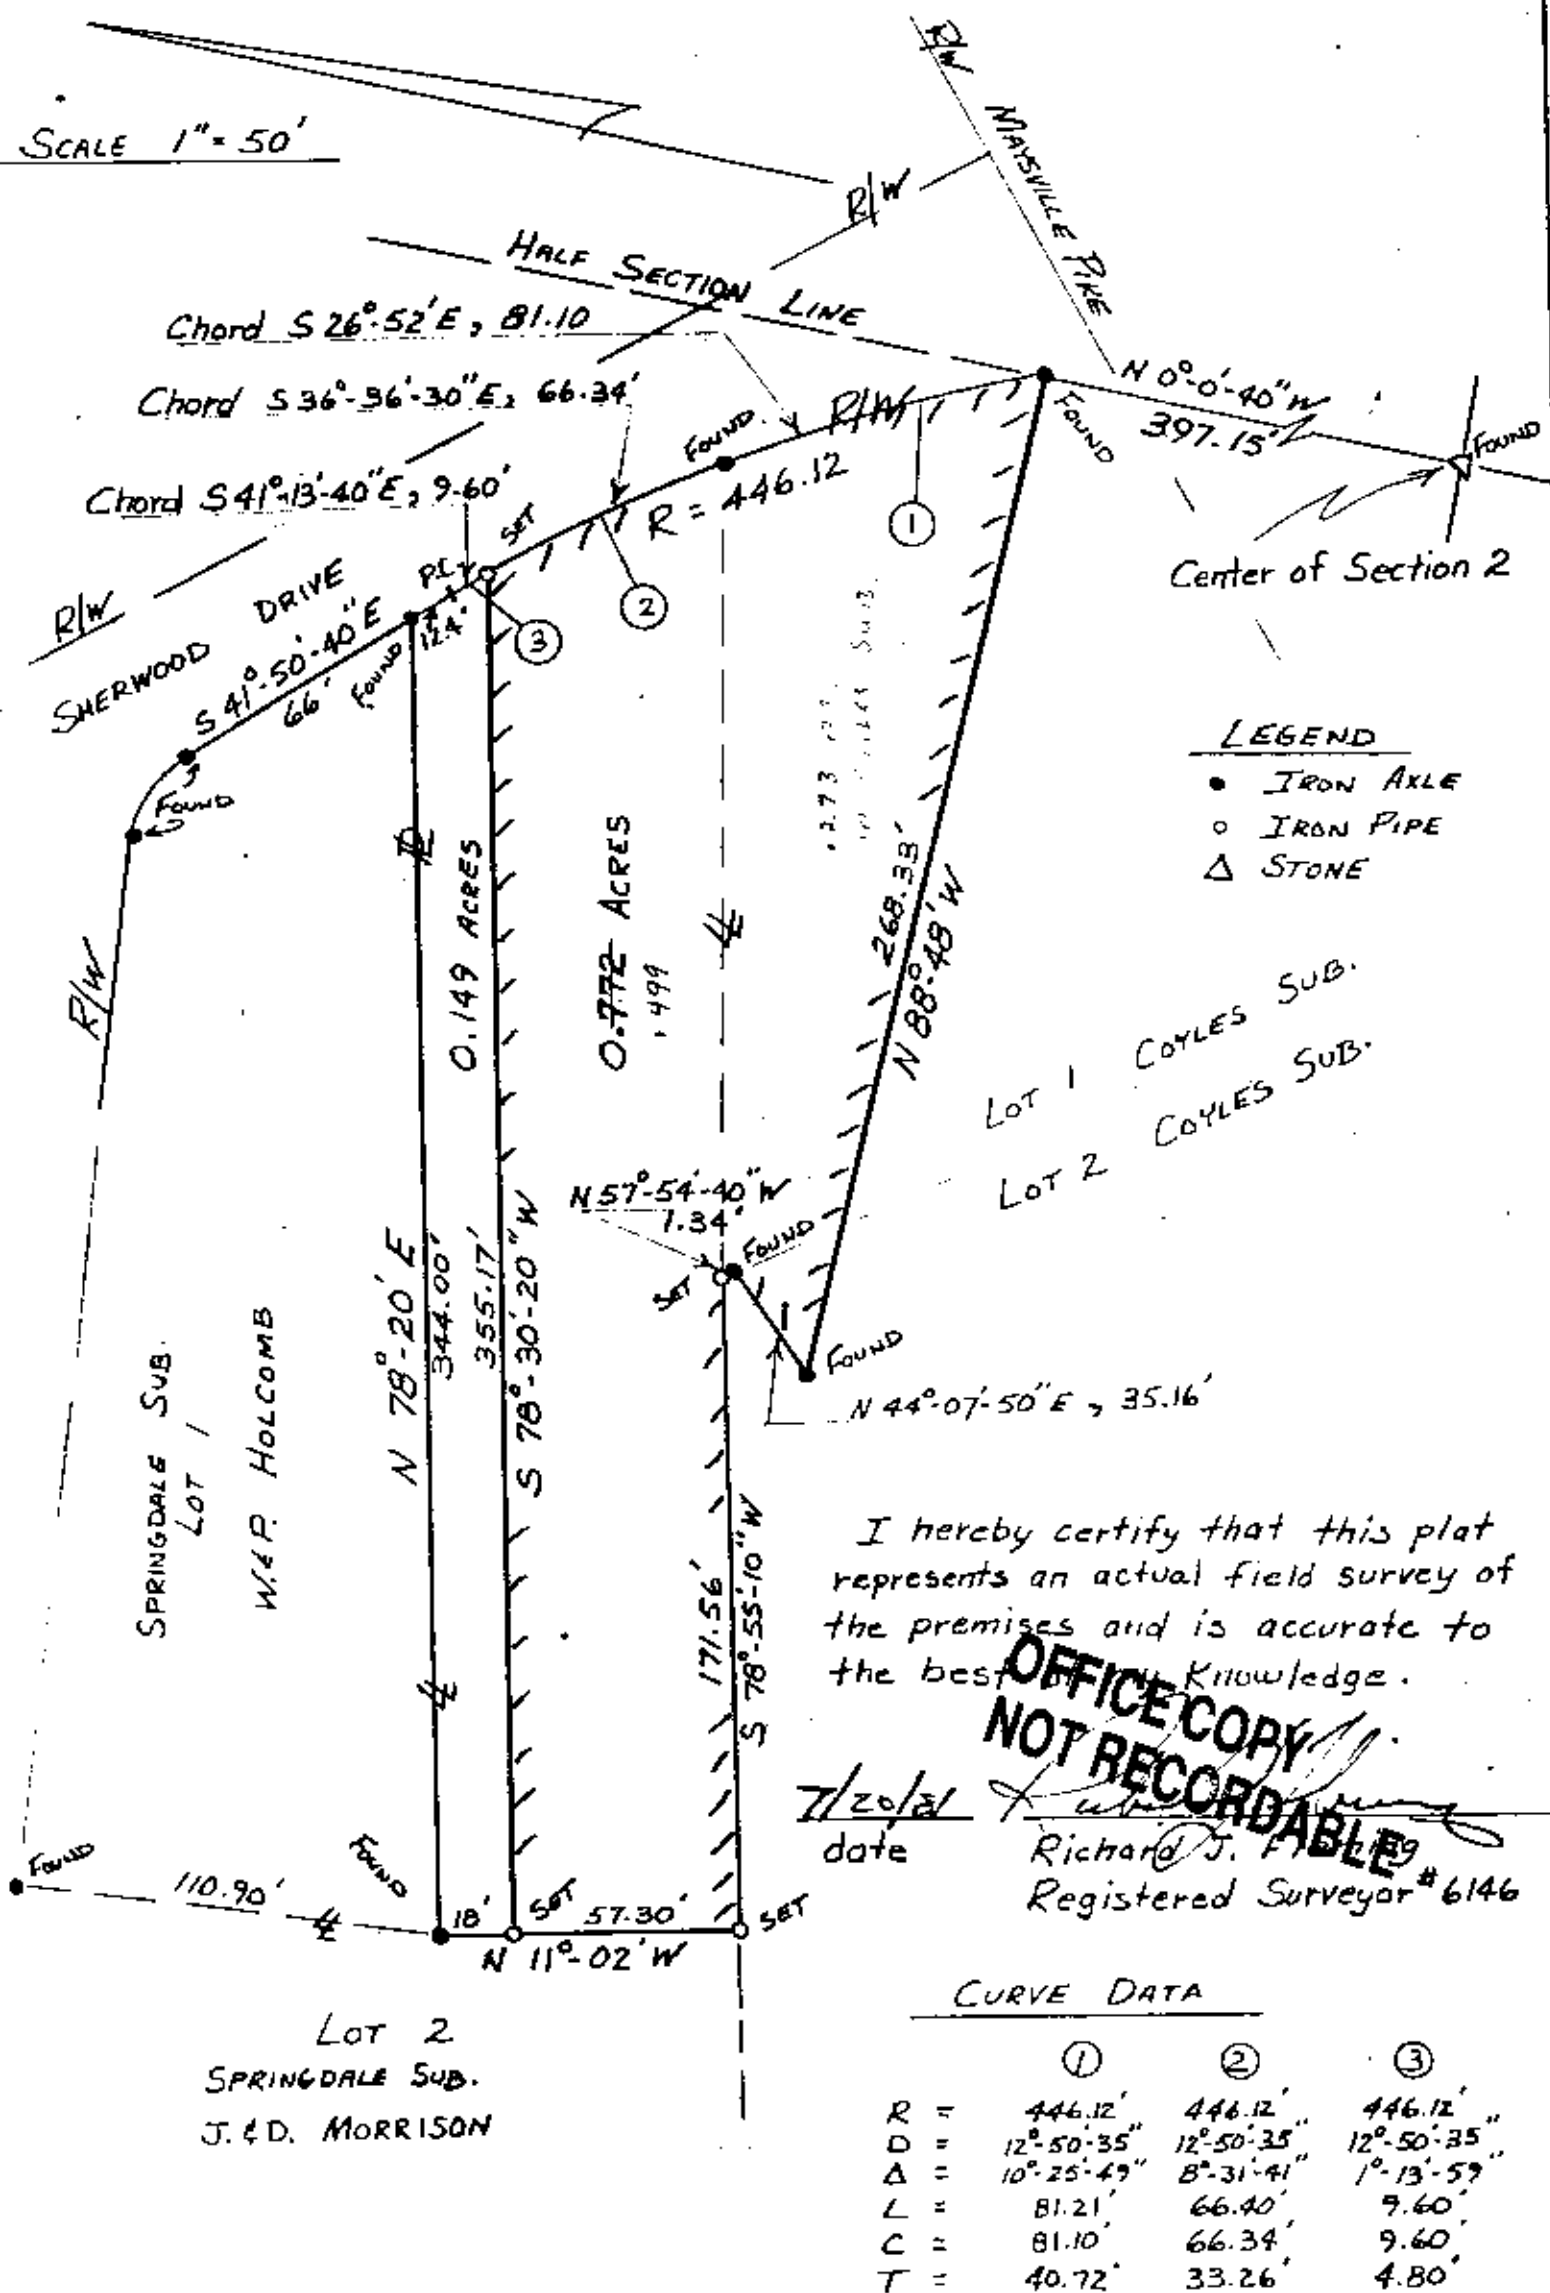 SCALE 1" = 50'
R/W
MAYSVILLE PIKE
R/W
HALF SECTION LINE
Chord S 26°-52' E, 81.10
Chord S 36°-36'-30" E, 66.34'
Chord S 41°-13'-40" E, 9.60'
N 0°-0'-40" W
397.15'
FOUND
FOUND
FOUND
R/W
R = 446.12
1
2
3
SET
P.C.
12.4'
Center of Section 2
R/W
SHERWOOD DRIVE
S 41°-50'-40" E
66'
FOUND
FOUND
LEGEND
● IRON AXLE
○ IRON PIPE
△ STONE
R/W
0.149 ACRES
0.772 ACRES
.499
.273
268.33'
N 88°-48' W
LOT 1 COYLES SUB.
LOT 2 COYLES SUB.
N 57°-54'-40" W
1.34'
FOUND
SET
FOUND
N 44°-07'-50" E, 35.16'
N 78°-20' E
344.00'
355.17'
S 78°-30'-20" W
SPRINGDALE SUB.
LOT 1
W. & P. HOLCOMB
171.56'
S 78°-55'-10" W
I hereby certify that this plat
represents an actual field survey of
the premises and is accurate to
the best Knowledge.
OFFICE COPY
NOT RECORDABLE
7/20/81
date
Richard J.
Registered Surveyor #6146
FOUND
110.90'
FOUND
18'
SET
57.30'
SET
N 11°-02' W
LOT 2
SPRINGDALE SUB.
J. & D. MORRISON
CURVE DATA
1 2 3
R = 446.12' 446.12' 446.12'
D = 12°-50'-35" 12°-50'-35" 12°-50'-35"
Δ = 10°-25'-49" 8°-31'-41" 1°-13'-59"
L = 81.21' 66.40' 9.60'
C = 81.10' 66.34' 9.60'
T = 40.72' 33.26' 4.80'